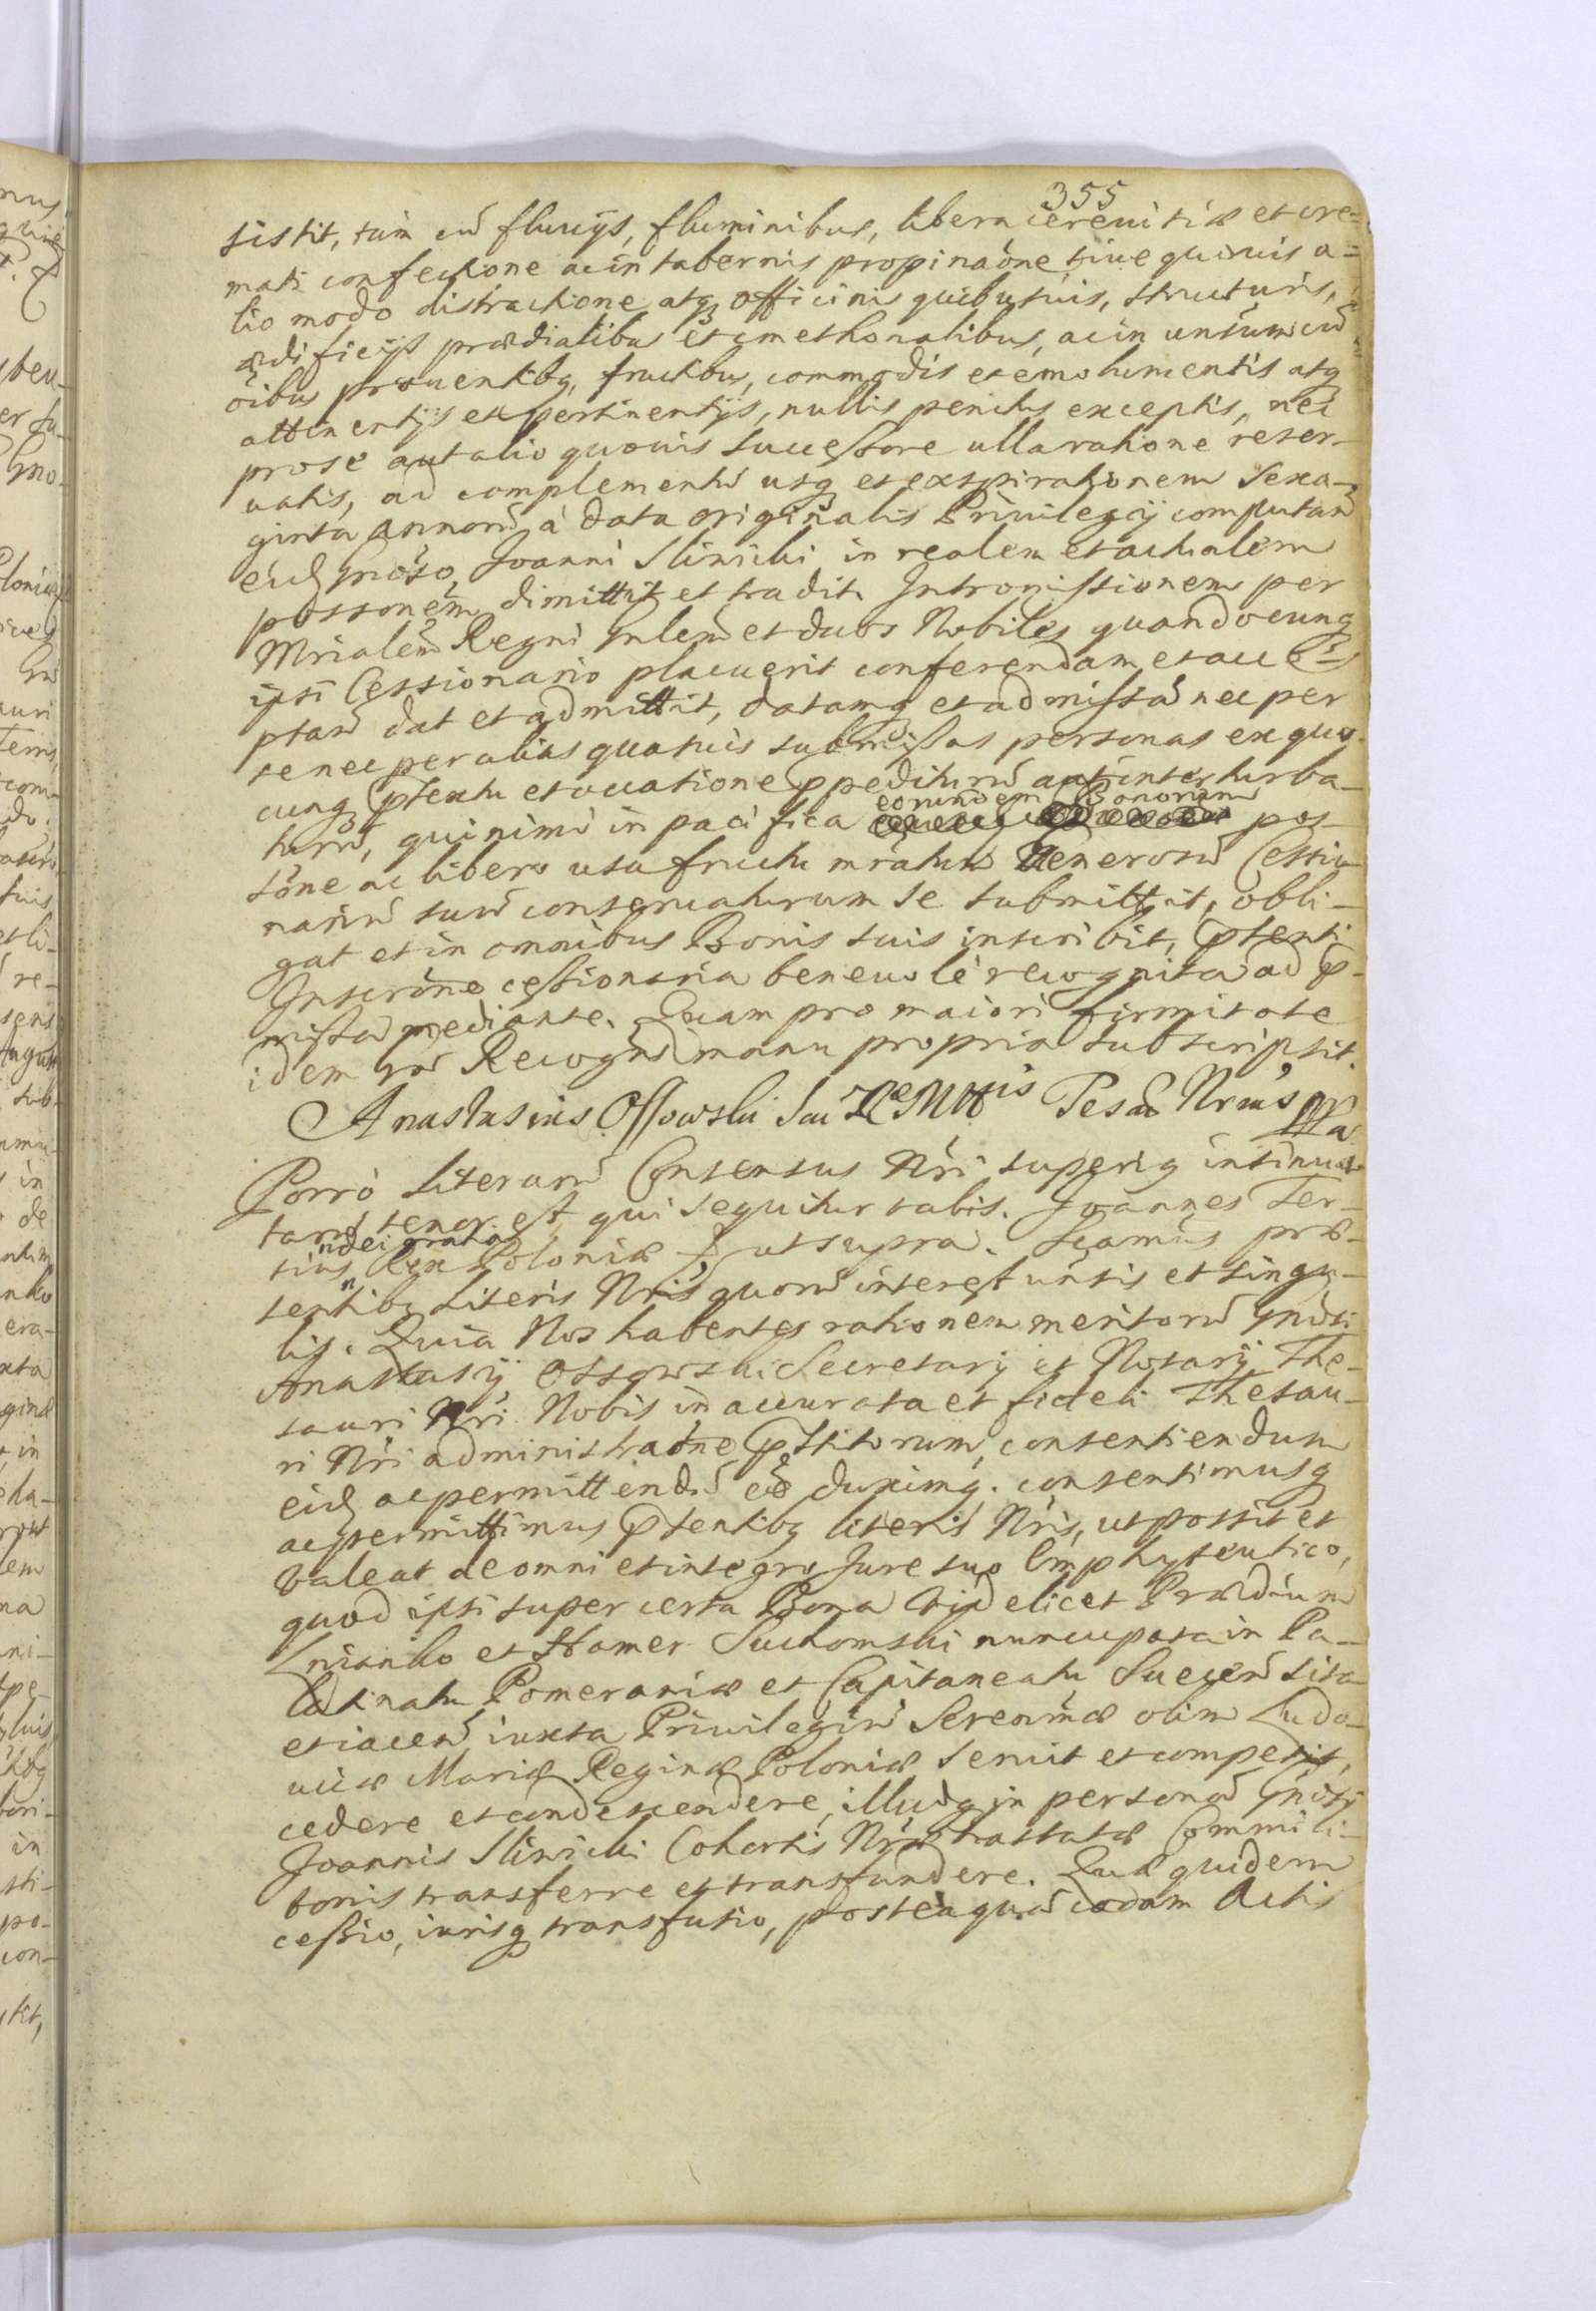 355
sistit, tum cũ fluuijs, fluminibus, libera cereuitiæ et cre=
mati confectione ac in tabernis propinaõne siue quouis a=
lio modo distractione atq̃ officinis quibusuis, structuris,
ædificijs prædialibus et cmethonalibus, ac in unĩusum cũ
oĩbus prouentibq, fructibus, commodis et emolumentis atq̃
attinentijs et pertinentijs, nullis penitus exceptis, nec
pro se aut alio quouis successore ulla ratione reser-
uatis, ad complementũ usq̃ et exspirationem Sexa-
ginta Annorũ à data originalis Priuilegij computan̄
eid̃ Gñoso Joanni Sliwicki in realem et actualem
possoñem dimittit et tradit. Intromissionem per
Mrialem Regni Gñlem et duos Nobiles quandocunq̃
ipsi Cessionario placuerit conferendam et acce-
ptan̄ dat et admittit, datamq̃ et admissã nec per
se nec per alias quasuis submissas personas ex quo-
cunq̃ p̃textu et occatione p̃pediturũ aut interturba-
turũ, quinimò in pacifica eorundem Bonorum pos-
sõne ac libero usufructu mr̃atum Generosũ Cessio-
nariũ suũ conseruaturum se submittit, obli-
gat et in omnibus Bonis suis inscribit, p̃senti
Inscriõne cessionaria beneuolè recognita ad p̃-
missa mediante. Quam pro maiori firmitate
idem Recogñ manu propria subscripsit.
Anastasius Ossowski Sac Rᵉ Mttis
Porrò Literarũ Consensus Nr̃i superiq insinua-
tarũ tenor est, qui sequitur talis. Joannes Ter-
tius dei gratia Rex Poloniæ ut supra. Significamus præ-
sentibq Literis Nris quorũ interest uñsis et singu-
lis. Quia Nos habentes rationem meritorũ Gñosi
Anastasij Ossowski Secretarij et Notarij The-
sauri Nr̃i Nobis in accurata et fideli Thesau-
ri Nr̃i administraõne p̃stitorum, consentiendum
eid̃ ac permittendũ eẽ duximq. consentimusq̃
ac permittimus p̃sentibq literis Nris, ut possit et
valeat de omni et integro Jure suo Emphyteutico,
quod ipsi super certa Bona videlicet Prædium
Lnianko et Hamer Suchomski nuncupata in Pa-
latinatu Pomeraniæ et Capitaneatu Suecen̄ sita
et iacen̄ iuxta Priuilegiũ Serenmæ olim Ludo-
uicæ Mariæ Reginæ Poloniæ seruit et competit,
cedere et condescendere, illudq̃ in personã Gñosi
Joannis Sliwicki Cohortis Nræ hastatæ Commili-
tonis transferre et transfundere. Quæ quidem
cessio, iurisq̃ transfusio, posteaquã eadem Actis